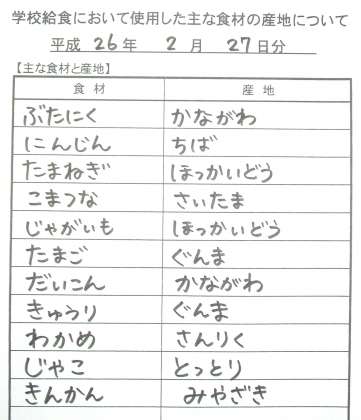 学校給食において使用した主な食材の産地について
平成 26 年 2 月 27 日分
【主な食材と産地】
食材 産地
ぶたにく かながわ
にんじん ちば
たまねぎ ほっかいどう
こまつな さいたま
じゃがいも ほっかいどう
たまご ぐんま
だいこん かながわ
きゅうり ぐんま
わかめ さんりく
じゃこ とっとり
きんかん みやざき